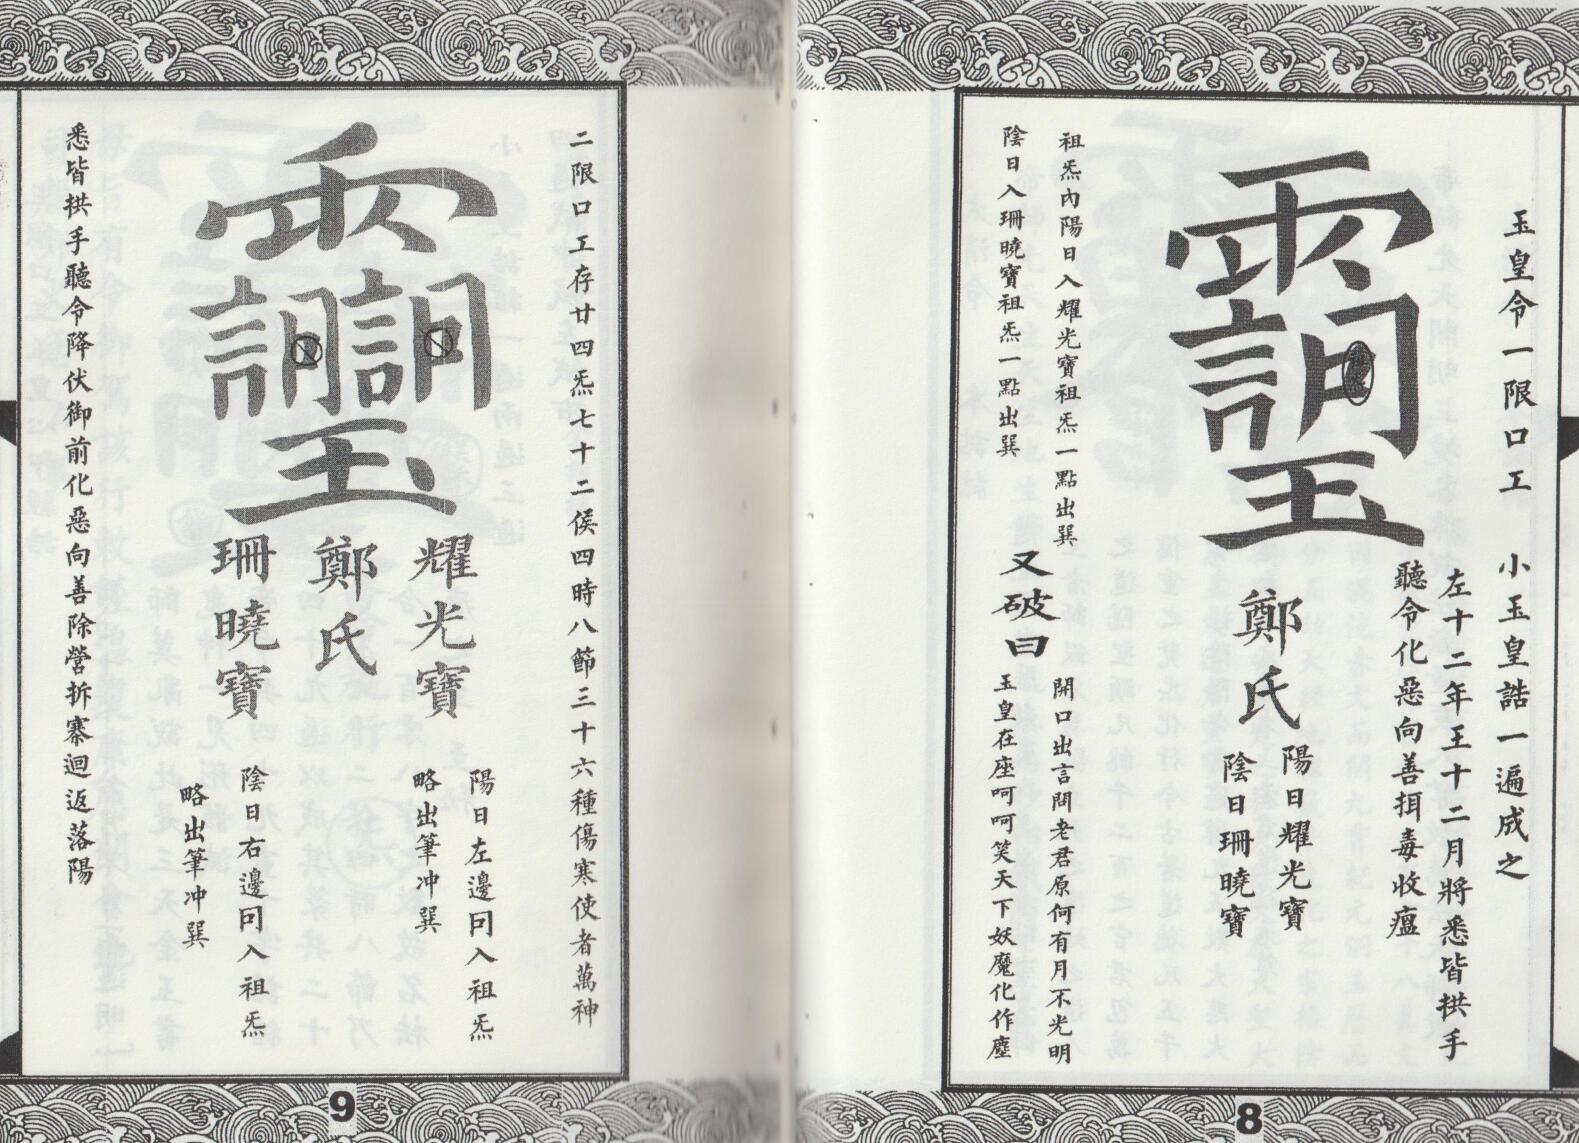 玉皇令一限口工　小玉皇誥一遍成之
左十二年王十二月將悉皆拱手
聽令化惡向善揖毒收瘟
鄭氏
陽日耀光寶
陰日珊曉寶
祖炁內陽日入耀光寶祖炁一點出巽
陰日入珊曉寶祖炁一點出巽
又破曰
開口出言問老君原何有月不光明
玉皇在座呵呵笑天下妖魔化作塵
8
二限口工存廿四炁七十二侯四時八節三十六種傷寒使者萬神
耀光寶
鄭氏
珊曉寶
陽日左邊冋入祖炁
略出筆冲巽
陰日右邊冋入祖炁
略出筆冲巽
悉皆拱手聽令降伏御前化惡向善除營拆寨迴返落陽
9